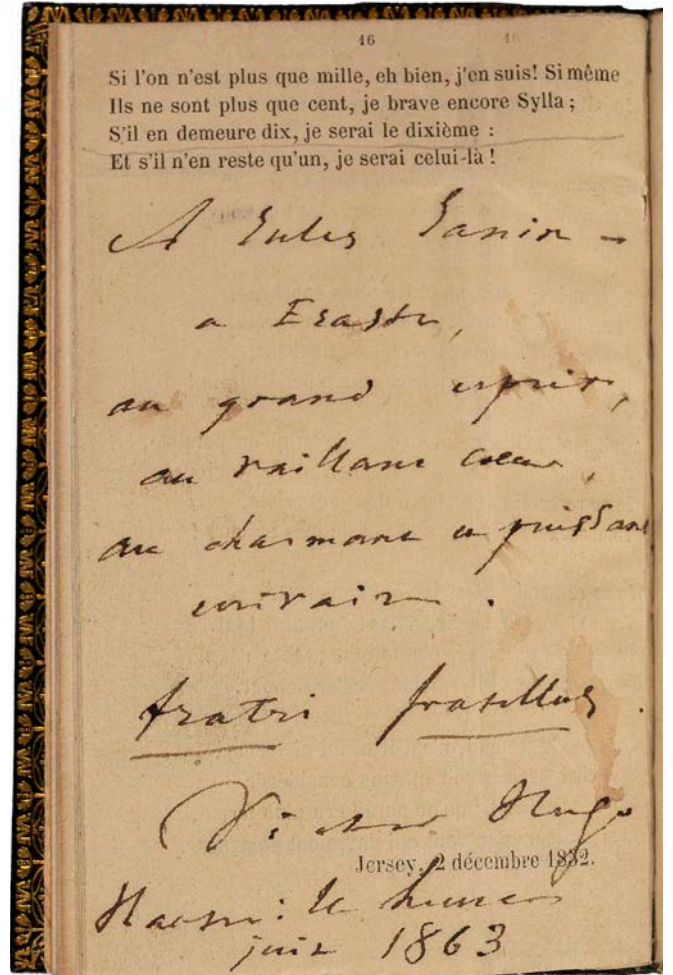 16
Si l'on n'est plus que mille, eh bien, j'en suis! Si même
Ils ne sont plus que cent, je brave encore Sylla ;
S'il en demeure dix, je serai le dixième :
Et s'il n'en reste qu'un, je serai celui-là !
A Jules Janin –
a Eraste,
au grand esprit,
au vaillant cœur,
au charmant et puissant
écrivain.
fratri fratellus.
Victor Hugo
Jersey, 2 décembre 1852.
H house
juin 1863